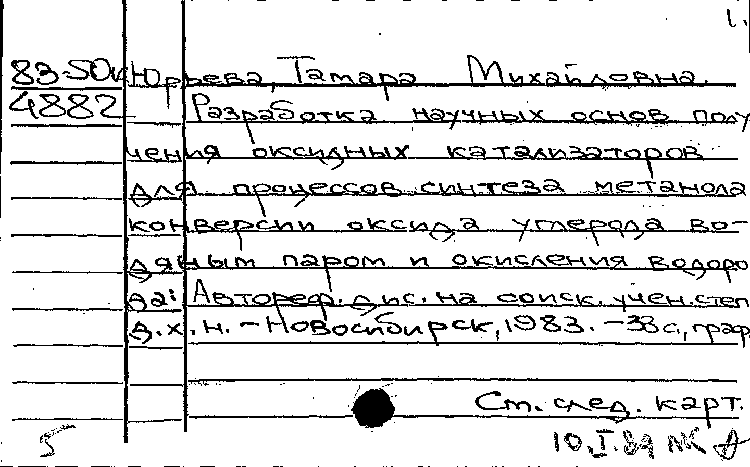 1.
83-50к Юрьева, Тамара Михайловна.
4882 Разработка научных основ полу
чения оксидных катализаторов
для процессов синтеза метанола
конверсии оксида углерода во-
дяным паром и окисления водоро
да: Автореф. дис. на соиск. учен. степ
д.х.н. - Новосибирск, 1983. - 38 с, граф
См. след. карт.
5 10.I.84